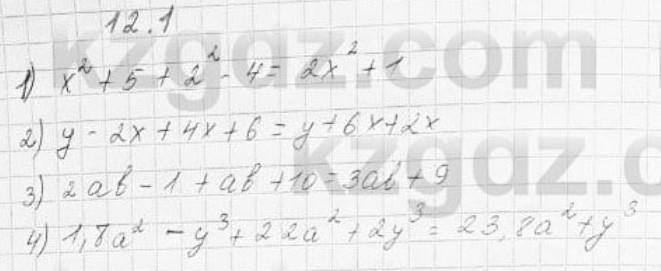 12.1
1) x² + 5 + 2² - 4 = 2x² + 1
2) y - 2x + 4x + 6 = y + 6x + 2x
3) 2ab - 1 + ab + 10 = 3ab + 9
4) 1,8a² - y³ + 22a² + 2y³ = 23,8a² + y³
kzgdz.com
kzgdz.c